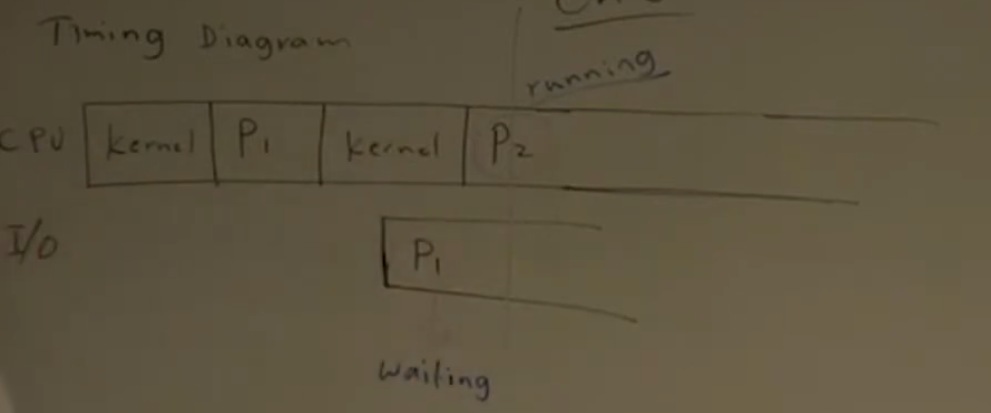 Timing Diagram
running
CPU kernel P1 kernel P2
I/O P1
waiting